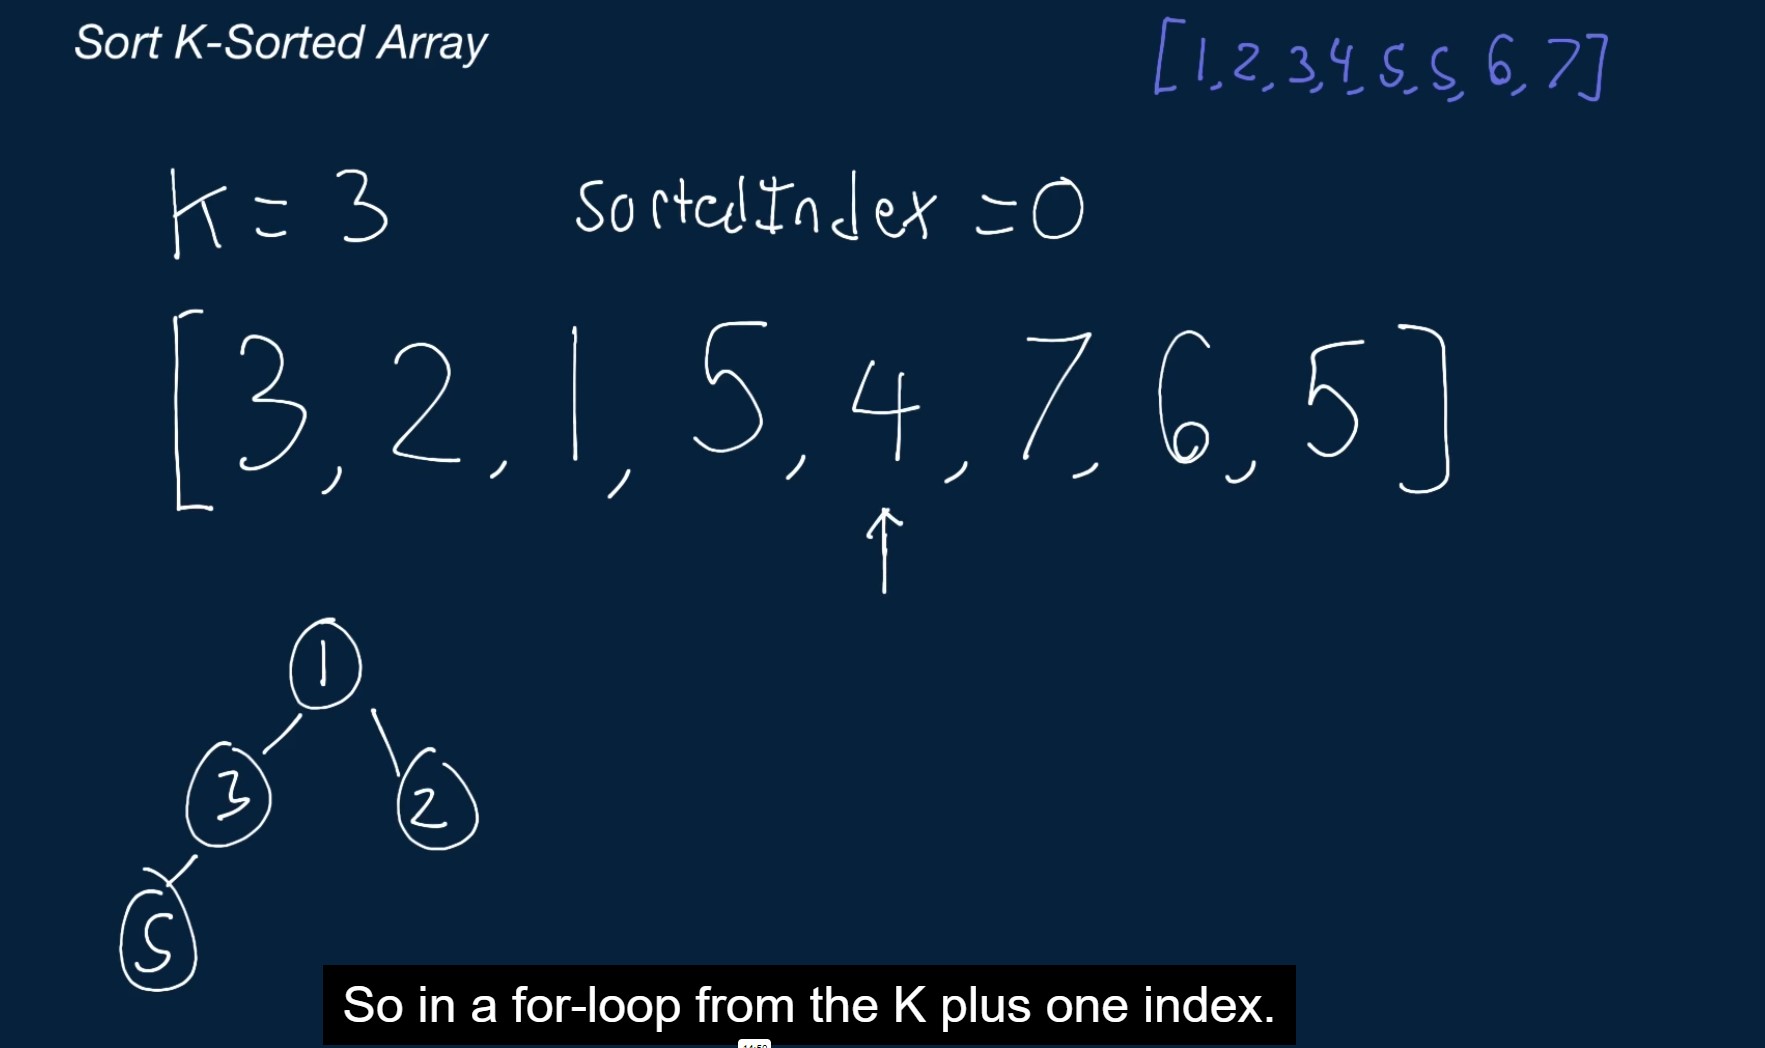 Sort K-Sorted Array
[1,2,3,4,5,5,6,7]
K=3 sortedIndex=0
[3,2,1,5,4,7,6,5]
1
3 2
5
So in a for-loop from the K plus one index.